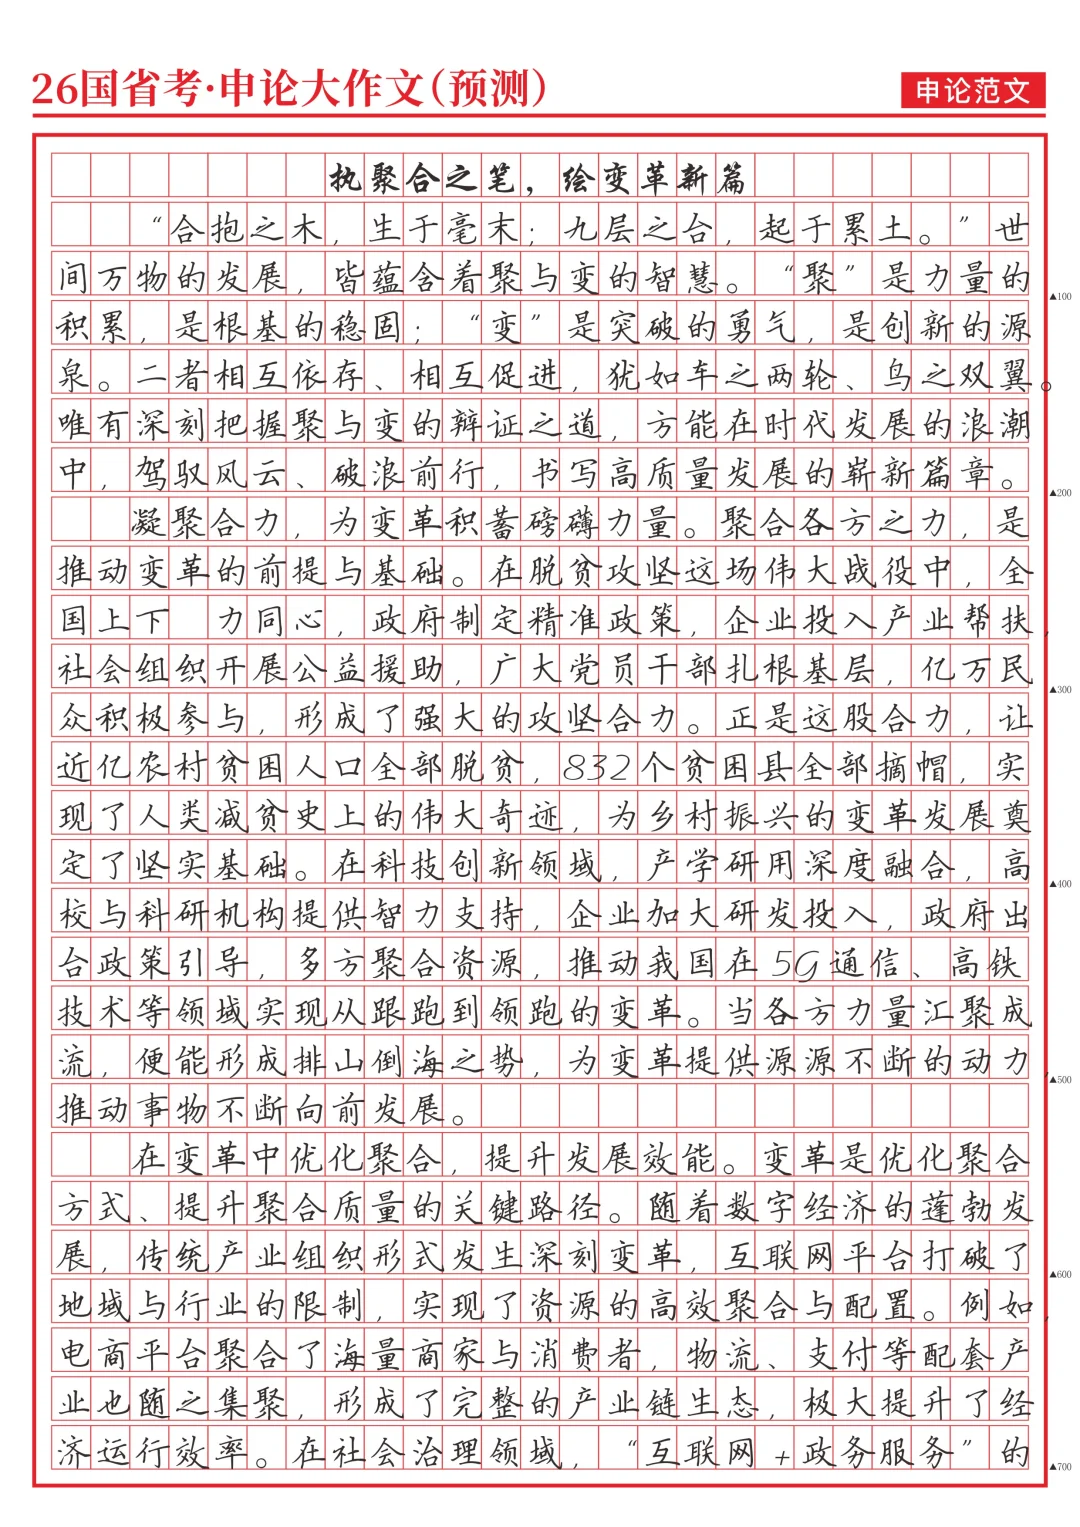 26国省考·申论大作文(预测)
申论范文
执聚合之笔，绘变革新篇
“合抱之木，生于毫末；九层之台，起于累土。”世
间万物的发展，皆蕴含着聚与变的智慧。“聚”是力量的
▲100
积累，是根基的稳固；“变”是突破的勇气，是创新的源
泉。二者相互依存、相互促进，犹如车之两轮、鸟之双翼。
唯有深刻把握聚与变的辩证之道，方能在时代发展的浪潮
中，驾驭风云、破浪前行，书写高质量发展的崭新篇章。
▲200
凝聚合力，为变革积蓄磅礴力量。聚合各方之力，是
推动变革的前提与基础。在脱贫攻坚这场伟大战役中，全
国上下 力同心，政府制定精准政策，企业投入产业帮扶，
社会组织开展公益援助，广大党员干部扎根基层，亿万民
▲300
众积极参与，形成了强大的攻坚合力。正是这股合力，让
近亿农村贫困人口全部脱贫，832个贫困县全部摘帽，实
现了人类减贫史上的伟大奇迹，为乡村振兴的变革发展奠
定了坚实基础。在科技创新领域，产学研用深度融合，高
▲400
校与科研机构提供智力支持，企业加大研发投入，政府出
台政策引导，多方聚合资源，推动我国在5G通信、高铁
技术等领域实现从跟跑到领跑的变革。当各方力量汇聚成
流，便能形成排山倒海之势，为变革提供源源不断的动力，
▲500
推动事物不断向前发展。
在变革中优化聚合，提升发展效能。变革是优化聚合
方式、提升聚合质量的关键路径。随着数字经济的蓬勃发
展，传统产业组织形式发生深刻变革，互联网平台打破了
▲600
地域与行业的限制，实现了资源的高效聚合与配置。例如，
电商平台聚合了海量商家与消费者，物流、支付等配套产
业也随之集聚，形成了完整的产业链生态，极大提升了经
济运行效率。在社会治理领域，“互联网+政务服务”的
▲700